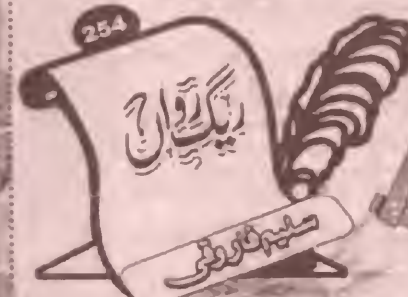 254
ریگ رواں
سلیم فاروقی